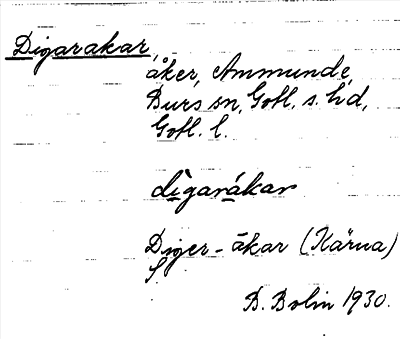 Digarakar,
åker, Ammunde,
Burs sn, Gotl. s. hd,
Gotl. l.
dìgarákar
Diger-åkar (Kärna)
B. Bolin 1930.